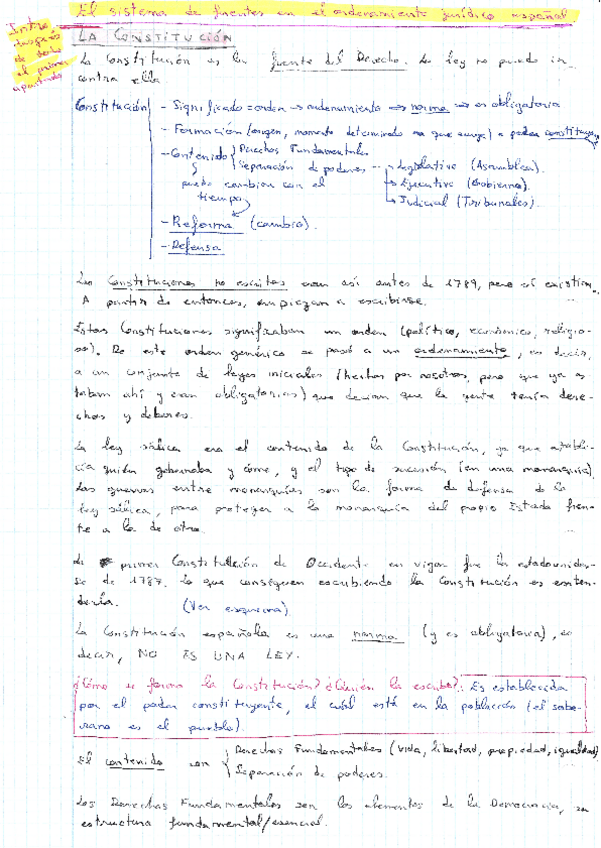 El sistema de fuentes en el ordenamiento jurídico español
Intro
después
de dcho
el primer
apartado
LA CONSTITUCIÓN
La Constitución es la fuente del Derecho. La ley no puede ir
contra ella.
Constitución - Significado = orden → ordenamiento → norma → es obligatoria
- Formación (origen, momento determinado en que surge) → poder constituyente
- Contenido Derechos Fundamentales
Separación de poderes → Legislativo (Asamblea).
puede cambiar con el → Ejecutivo (Gobierno).
tiempo → Judicial (Tribunales).
- Reforma (cambio).
- Defensa
Las Constituciones no escritas eran así antes de 1789, pero sí existían.
A partir de entonces, empiezan a escribirse.
Estas Constituciones significaban un orden (político, económico, religio-
so). De este orden genérico se pasó a un ordenamiento, es decir,
a un conjunto de leyes iniciales (hechas por nosotros, pero que ya es
taban ahí y eran obligatorias) que decían que la gente tenía dere-
chos y deberes.
La ley sálica era el contenido de la Constitución, ya que estable-
cía quién gobernaba y cómo, y el tipo de sucesión (en una monarquía).
Las guerras entre monarquías son la forma de defensa de la
ley sálica, para proteger a la monarquía del propio Estado fren-
te a la de otro.
La primer Constitución de Occidente en vigor fue la estadouniden-
se de 1787. Lo que consiguen escribiendo la Constitución es exten-
derla. (Ver esquema).
La Constitución española es una norma (y es obligatoria), es
decir, NO ES UNA LEY.
¿Cómo se forma la Constitución? ¿Quién la escribe?. Es establecida
por el poder constituyente, el cuál está en la población (el sobe-
rano es el pueblo).
El contenido son Derechos Fundamentales (vida, libertad, propiedad, igualdad)
Separación de poderes.
Los Derechos Fundamentales son los elementos de la Democracia, su
estructura fundamental/esencial.